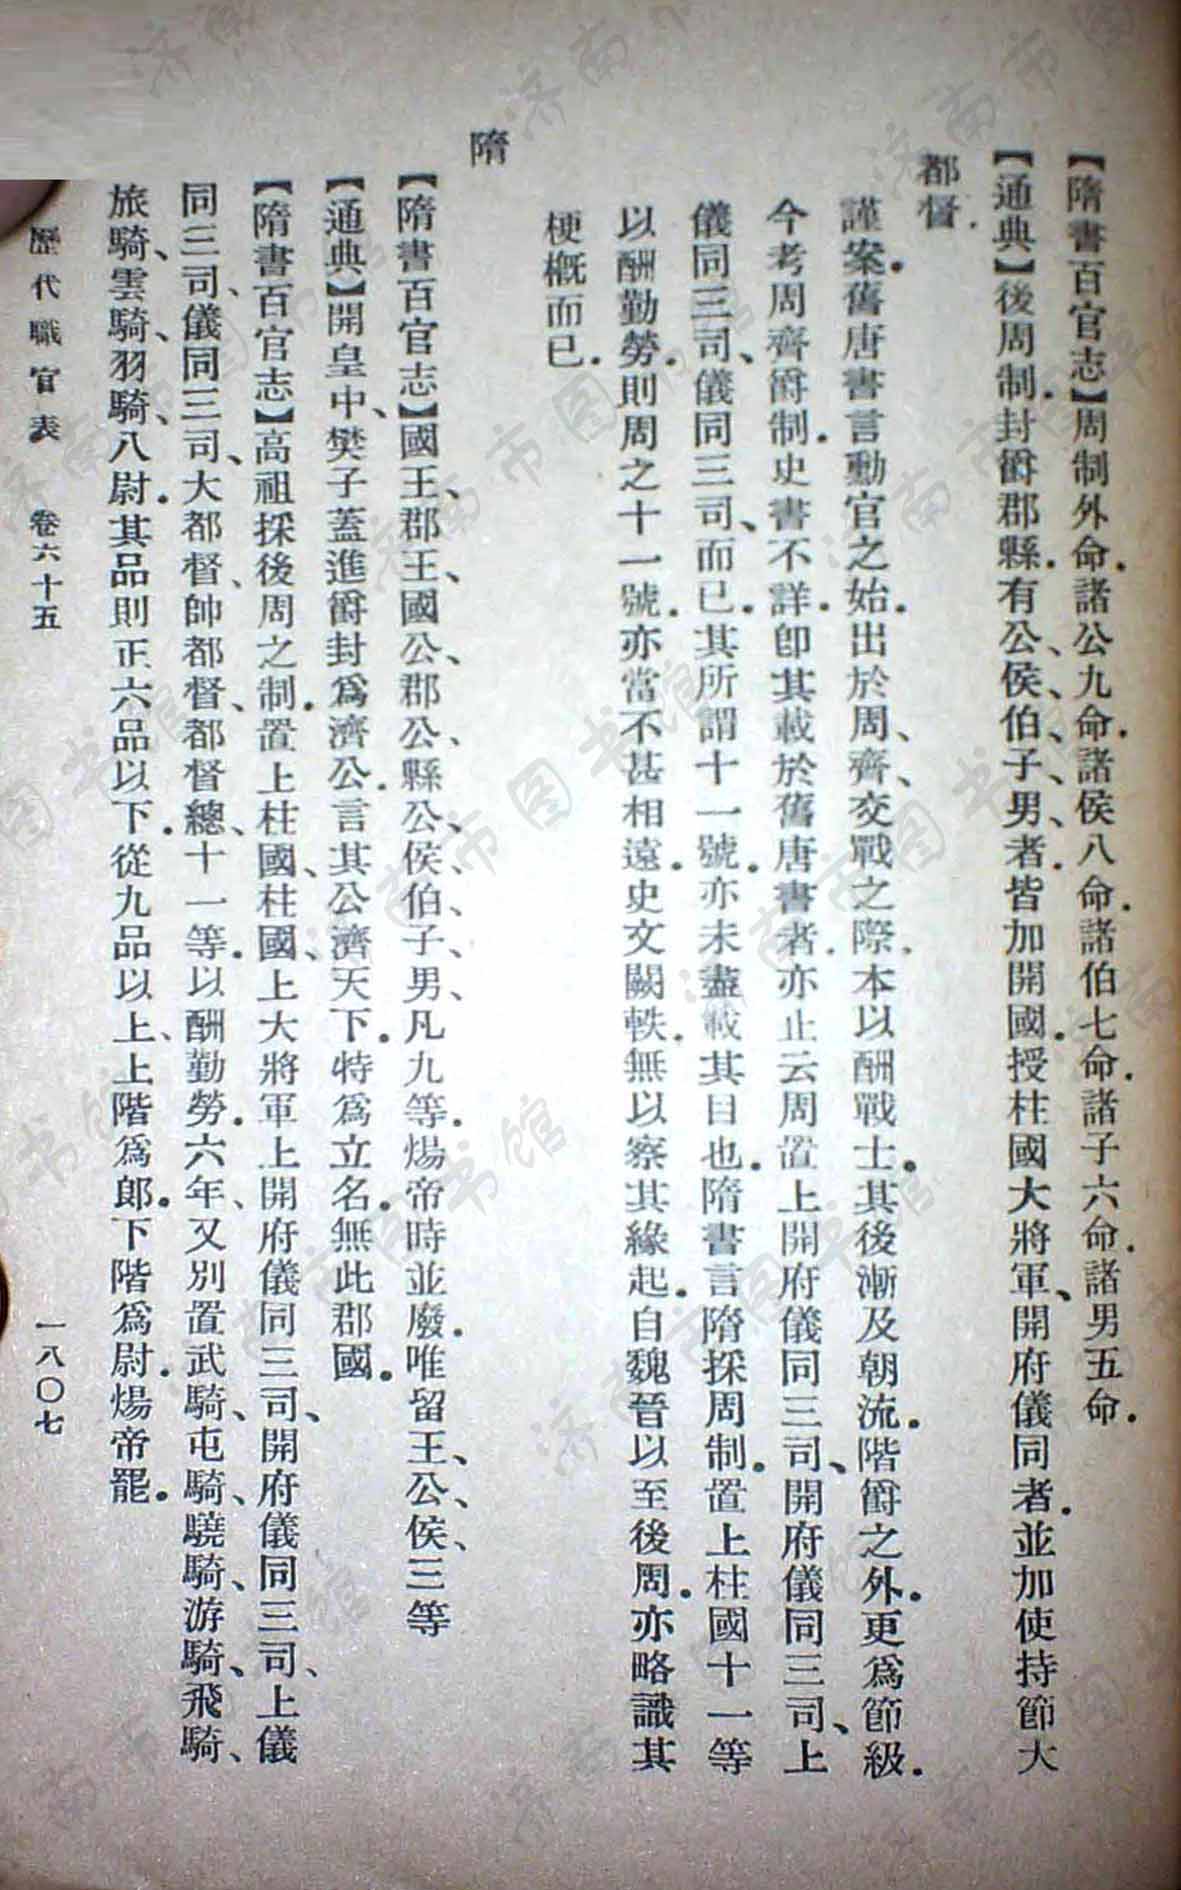 【隋書百官志】周制外命．諸公九命．諸侯八命．諸伯七命．諸子六命．諸男五命．
【通典】後周制．封爵郡縣．有公、侯、伯、子、男者．皆加開國．授柱國大將軍、開府儀同者．並加使持節大
都督．
謹案．舊唐書言勳官之始．出於周、齊交戰之際．本以酬戰士．其後漸及朝流．階爵之外．更爲節級．
今考周齊爵制．史書不詳．卽其載於舊唐書者．亦止云周置上開府儀同三司、開府儀同三司、上
儀同三司、儀同三司、而已．其所謂十一號．亦未盡載其目也．隋書言隋採周制．置上柱國十一等
以酬勤勞．則周之十一號．亦當不甚相遠．史文闕軼．無以察其緣起．自魏晉以至後周．亦略識其
梗概而已．
隋
【隋書百官志】國王、郡王、國公、郡公、縣公、侯、伯、子、男、凡九等．煬帝時並廢．唯留王、公、侯、三等
【通典】開皇中、樊子蓋進爵封爲濟公．言其公濟天下．特爲立名．無此郡國．
【隋書百官志】高祖採後周之制．置上柱國、柱國、上大將軍上開府儀同三司、開府儀同三司、上儀
同三司、儀同三司、大都督、帥都督、都督總、十一等．以酬勤勞．六年、又別置武騎、屯騎、驍騎、游騎、飛騎、
旅騎、雲騎、羽騎、八尉．其品則正六品以下．從九品以上、上階爲郞．下階爲尉．煬帝罷．
歷代職官表　卷六十五　一八〇七
济南市图书馆